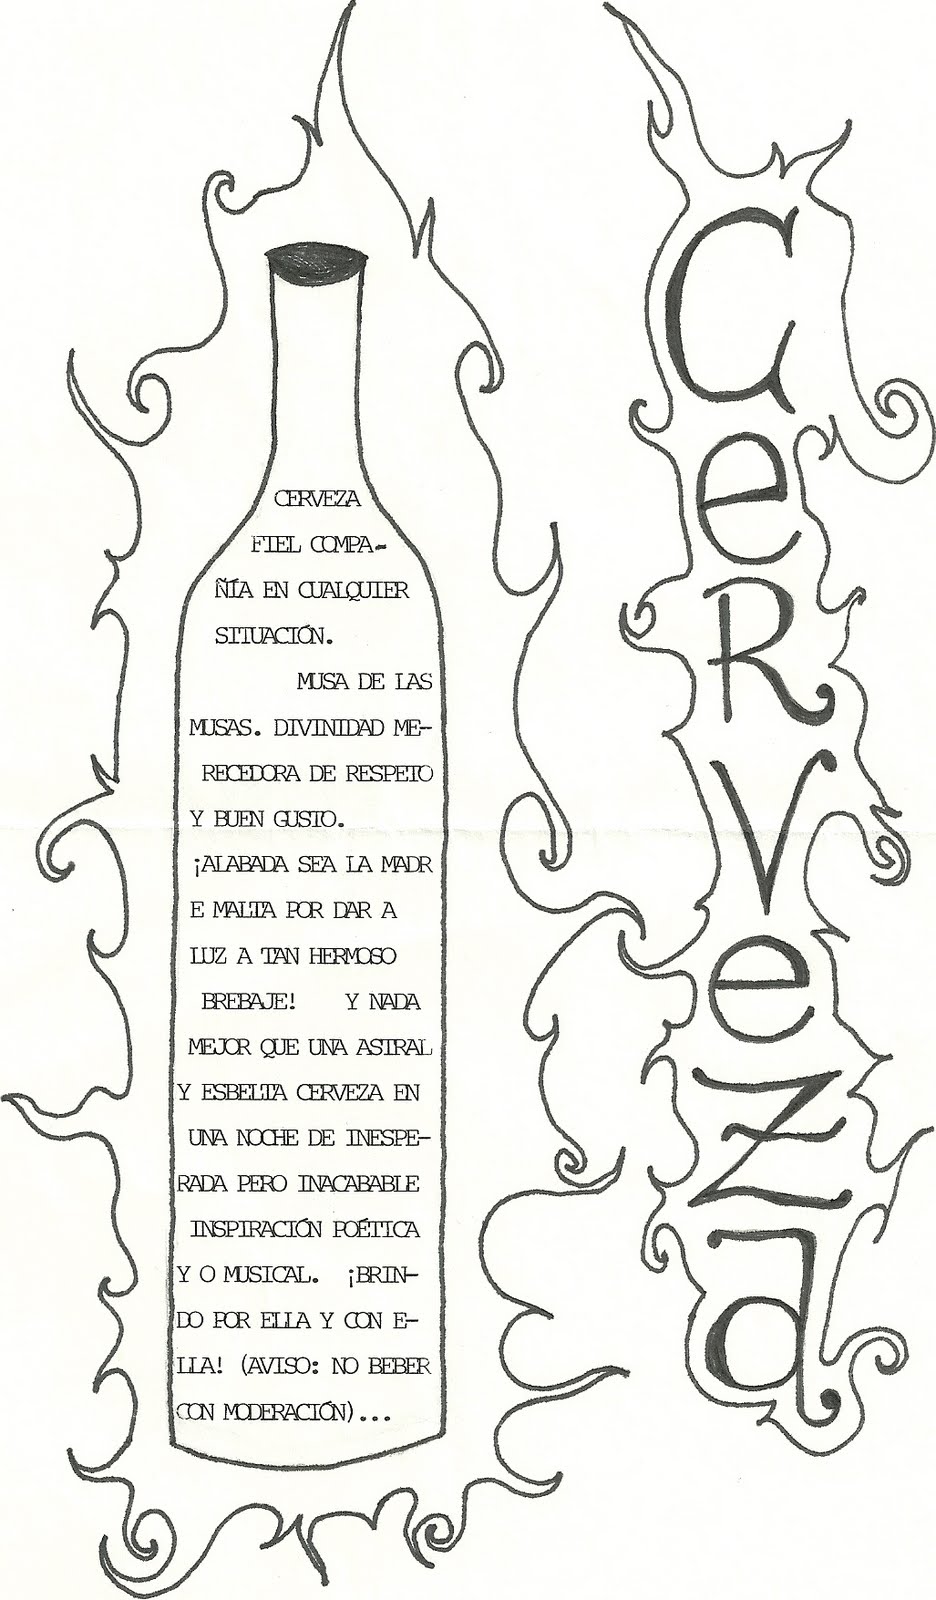 CERVEZA
FIEL COMPA-
ÑÍA EN CUALQUIER
SITUACIÓN.
MUSA DE LAS
MUSAS. DIVINIDAD ME-
RECEDORA DE RESPETO
Y BUEN GUSTO.
¡ALABADA SEA LA MADR
E MALTA POR DAR A
LUZ A TAN HERMOSO
BREBAJE! Y NADA
MEJOR QUE UNA ASTRAL
Y ESBELTA CERVEZA EN
UNA NOCHE DE INESPE-
RADA PERO INACABABLE
INSPIRACIÓN POÉTICA
Y O MUSICAL. ¡BRIN-
DO POR ELLA Y CON E-
LLA! (AVISO: NO BEBER
CON MODERACIÓN)...
CeRVeZa